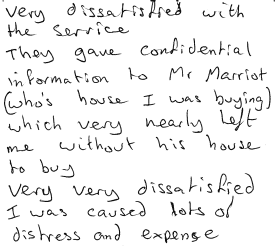 Very dissatisfied with
the service
They gave confidential
information to Mr Marriot
(who's house I was buying)
which very nearly left
me without his house
to buy
Very very dissatisfied
I was caused lots of
distress and expense